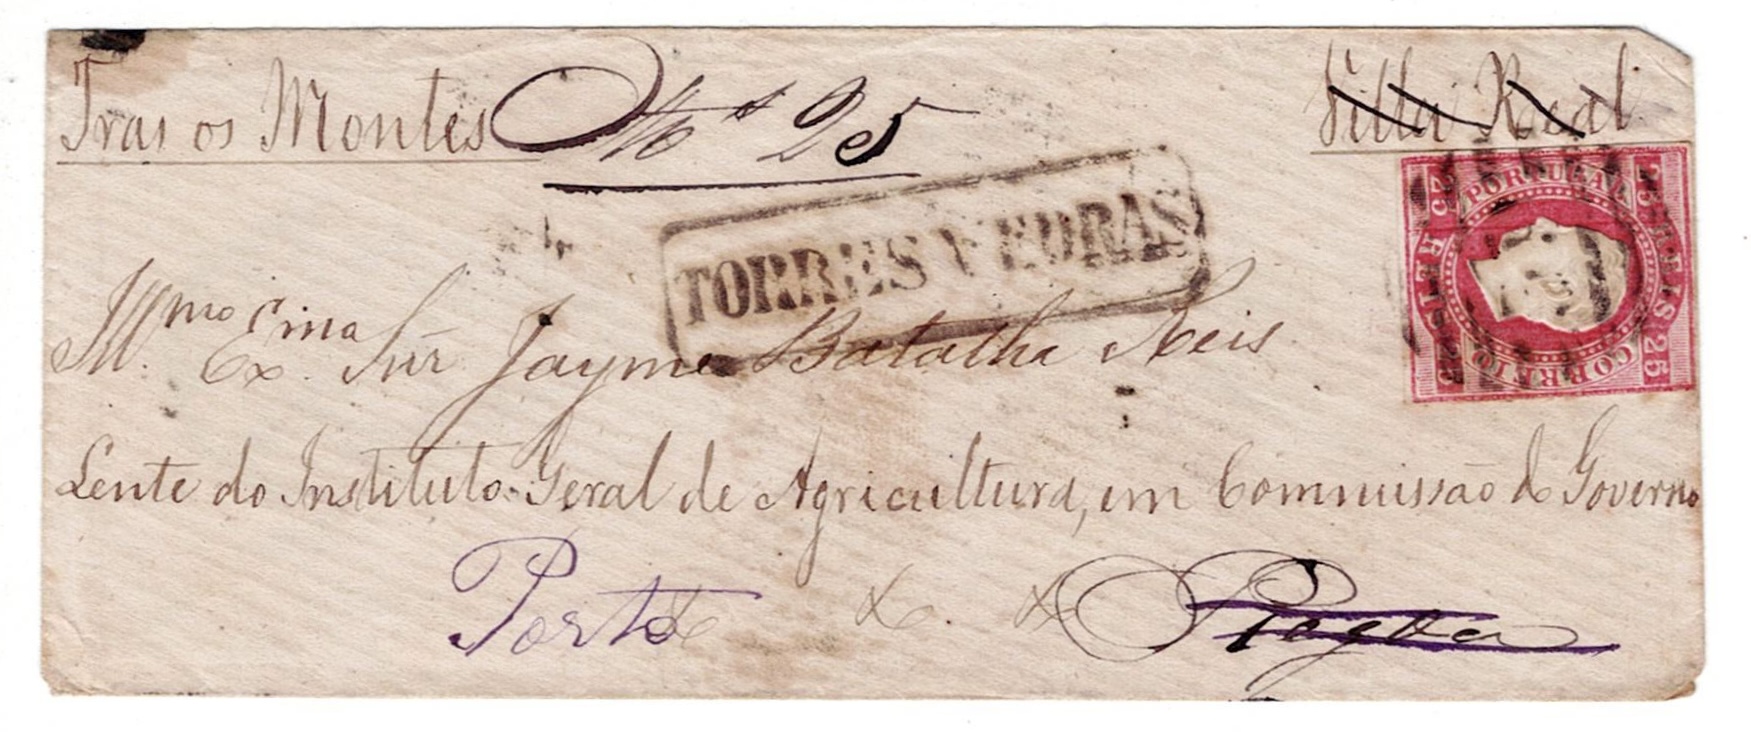 Tras os Montes Nº 25 Villa Real
TORRES VEDRAS
25 REIS 25 REIS 25
PORTUGAL
CORREIO
Illmo Exmo Snr Jayme Batalha Reis
Lente do Instituto Geral de Agricultura, em Commissão do Governo
Porto &. &. &. Regoa